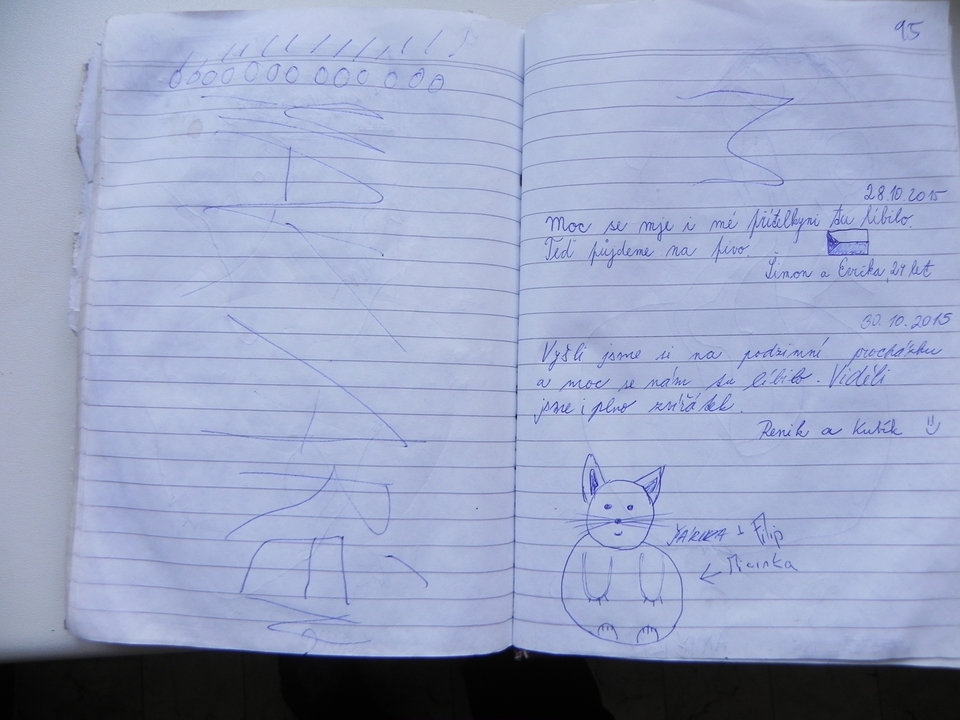 95
28.10.2015
Moc se mje i mé přítelkyni tu líbilo.
Teď půjdeme na pivo.
Šimon a Evička, 24 let
30.10.2015
Vyšli jsme si na podzimní procházku
a moc se nám tu líbilo. Viděli
jsme i plno zvířátek.
Renik a Kubík
ŠÁRIKA + Filip
← Micinka